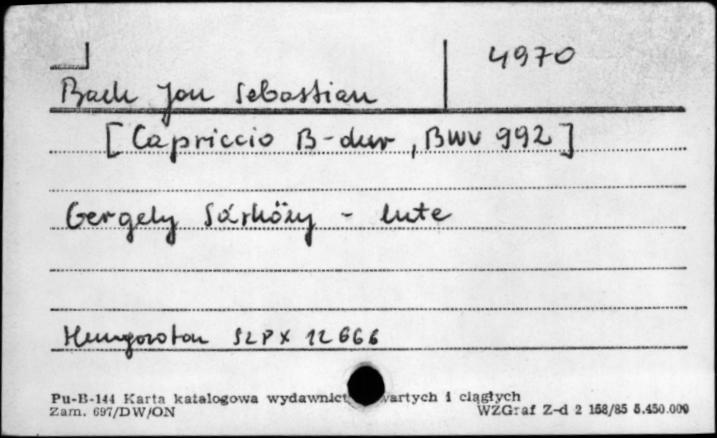 4970
Bach Jan Sebastian
[Capriccio B-dur, BWV 992]
Gergely Sárközy - lute
Hungaroton SLPX 12666
Pu-B-144 Karta katalogowa wydawnict wartych i ciągłych
Zam. 697/DW/ON WZGraf Z-d 2 158/85 5.450.000